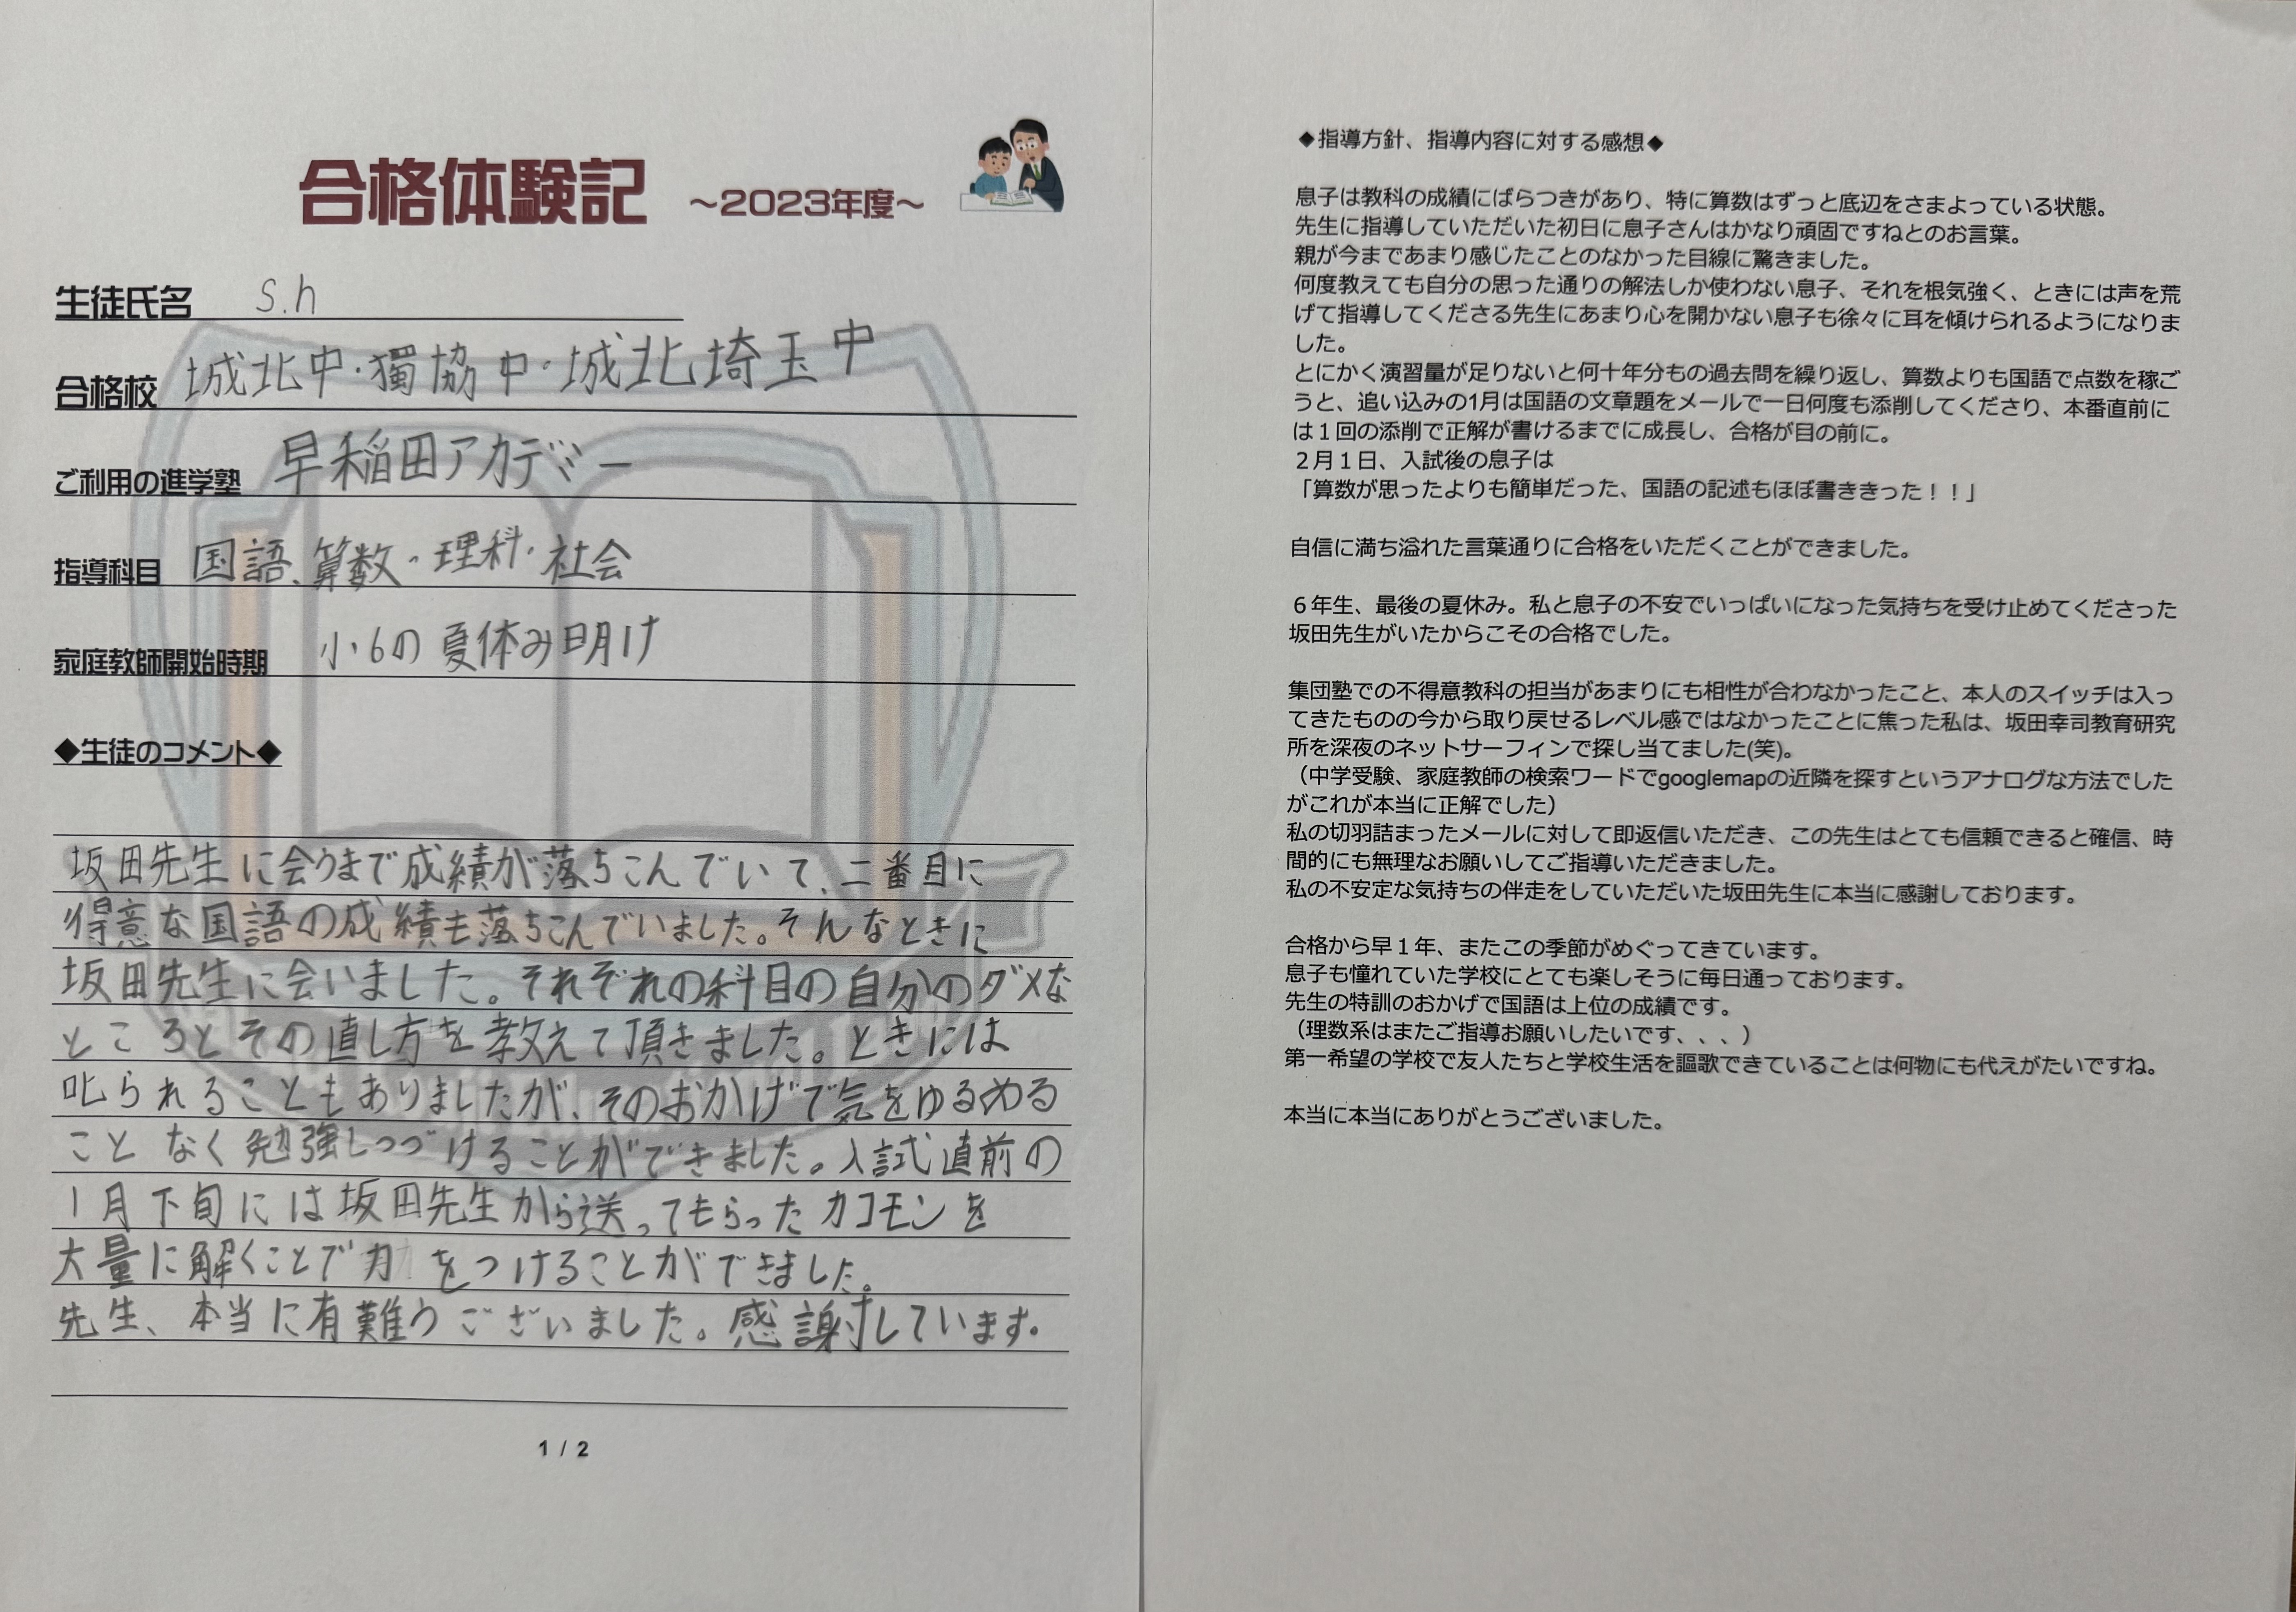 合格体験記 ～2023年度～
生徒氏名 s.h
合格校 城北中・獨協中・城北埼玉中
ご利用の進学塾 早稲田アカデミー
指導科目 国語、算数・理科・社会
家庭教師開始時期 小6の夏休み明け
◆生徒のコメント◆
坂田先生に会うまで成績が落ちこんでいて、二番目に
得意な国語の成績も落ちこんでいました。そんなときに
坂田先生に会いました。それぞれの科目の自分のダメな
ところとその直し方を教えて頂きました。ときには
叱られることもありましたが、そのおかげで気をゆるめる
ことなく勉強しつづけることができました。入試直前の
1月下旬には坂田先生から送ってもらったカコモンを
大量に解くことで力をつけることができました。
先生、本当に有難うございました。感謝しています。
1 / 2
◆指導方針、指導内容に対する感想◆
息子は教科の成績にばらつきがあり、特に算数はずっと底辺をさまよっている状態。
先生に指導していただいた初日に息子さんはかなり頑固ですねとのお言葉。
親が今まであまり感じたことのなかった目線に驚きました。
何度教えても自分の思った通りの解法しか使わない息子、それを根気強く、ときには声を荒
げて指導してくださる先生にあまり心を開かない息子も徐々に耳を傾けられるようになりま
した。
とにかく演習量が足りないと何十年分もの過去問を繰り返し、算数よりも国語で点数を稼ご
うと、追い込みの1月は国語の文章題をメールで一日何度も添削してくださり、本番直前に
は１回の添削で正解が書けるまでに成長し、合格が目の前に。
２月１日、入試後の息子は
「算数が思ったよりも簡単だった、国語の記述もほぼ書ききった！！」
自信に満ち溢れた言葉通りに合格をいただくことができました。
６年生、最後の夏休み。私と息子の不安でいっぱいになった気持ちを受け止めてくださった
坂田先生がいたからこその合格でした。
集団塾での不得意教科の担当があまりにも相性が合わなかったこと、本人のスイッチは入っ
てきたものの今から取り戻せるレベル感ではなかったことに焦った私は、坂田幸司教育研究
所を深夜のネットサーフィンで探し当てました(笑)。
（中学受験、家庭教師の検索ワードでgooglemapの近隣を探すというアナログな方法でした
がこれが本当に正解でした）
私の切羽詰まったメールに対して即返信いただき、この先生はとても信頼できると確信、時
間的にも無理なお願いしてご指導いただきました。
私の不安定な気持ちの伴走をしていただいた坂田先生に本当に感謝しております。
合格から早１年、またこの季節がめぐってきています。
息子も憧れていた学校にとても楽しそうに毎日通っております。
先生の特訓のおかげで国語は上位の成績です。
（理数系はまたご指導お願いしたいです、、、）
第一希望の学校で友人たちと学校生活を謳歌できていることは何物にも代えがたいですね。
本当に本当にありがとうございました。